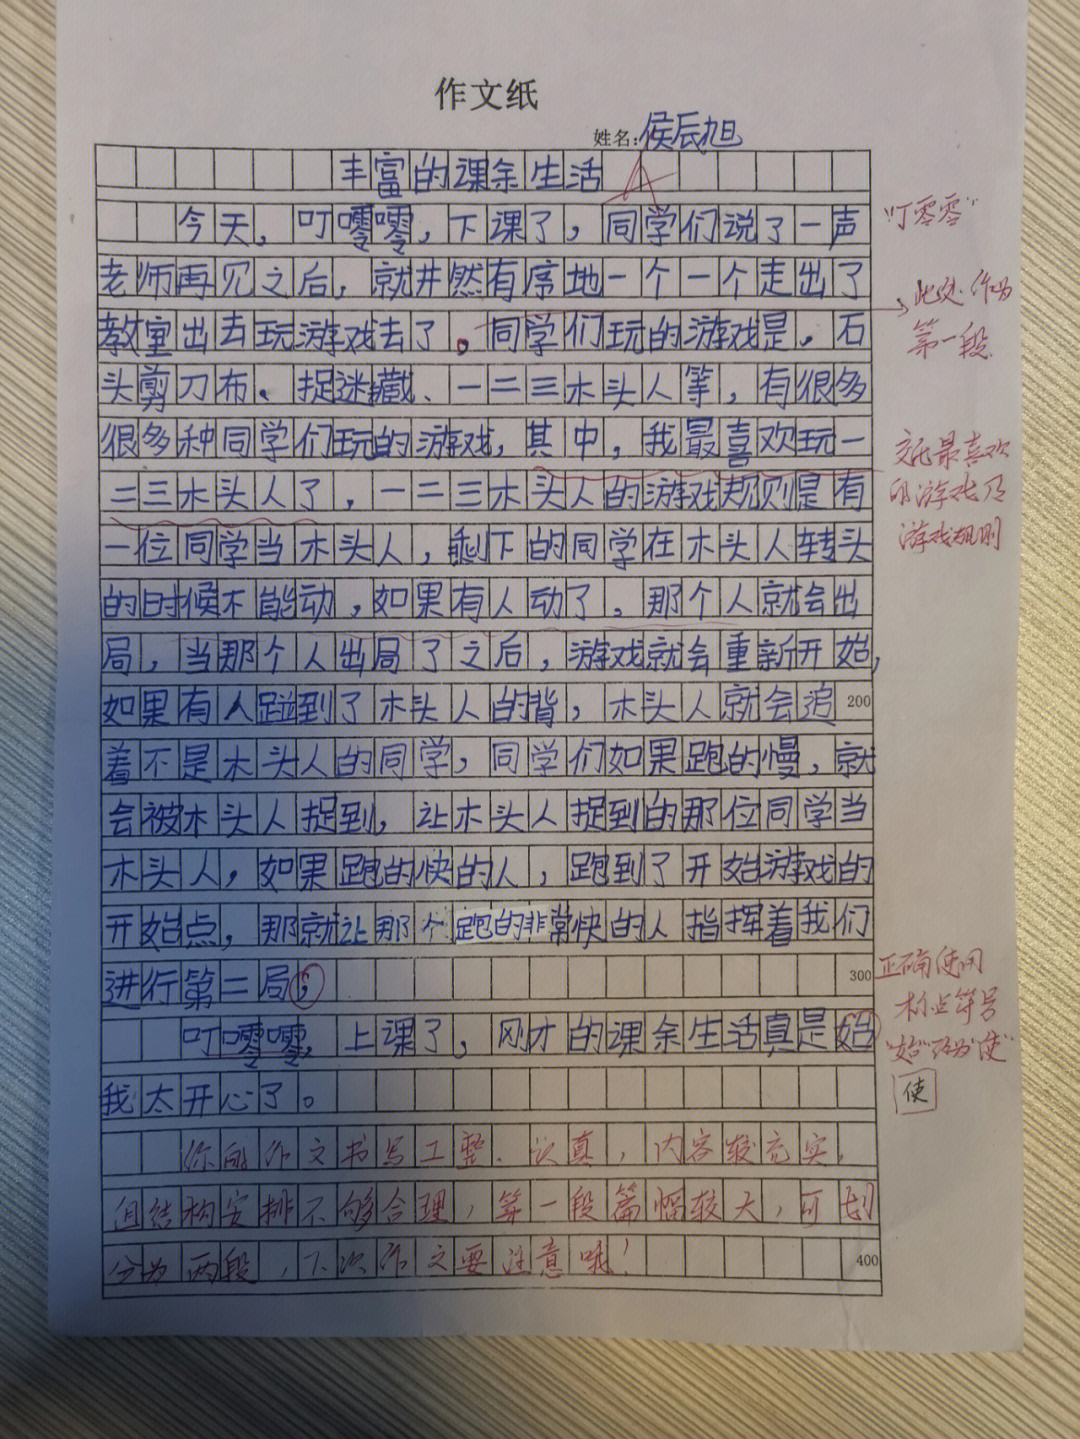 作文纸
姓名:侯辰旭
丰富的课余生活
A
今天，叮嘡嘡，下课了，同学们说了一声
"叮零零"
老师再见之后，就井然有序地一个一个走出了
此处作为
第一段
教室出去玩游戏去了。同学们玩的游戏是，石
头剪刀布、捉迷藏、一二三木头人等，有很多
很多种同学们玩的游戏，其中，我最喜欢玩一
交代最喜欢
的游戏及
游戏规则
二三木头人了，一二三木头人的游戏规则是有
一位同学当木头人，剩下的同学在木头人转头
的时候不能动，如果有人动了，那个人就会出
局，当那个人出局了之后，游戏就会重新开始，
如果有人碰到了木头人的背，木头人就会追
200
着不是木头人的同学，同学们如果跑的慢，就
会被木头人捉到，让木头人捉到的那位同学当
木头人，如果跑的快的人，跑到了开始游戏的
开始点，那就让那个跑的非常快的人指挥着我们
进行第二局，
300
正确使用
标点符号
叮嘡嘡，上课了，刚才的课余生活真是始
"始"改为"使"
使
我太开心了。
你的作文书写工整、认真，内容较充实，
但结构安排不够合理，第一段篇幅较大，可划
分为两段，下次作文要注意哦！
400